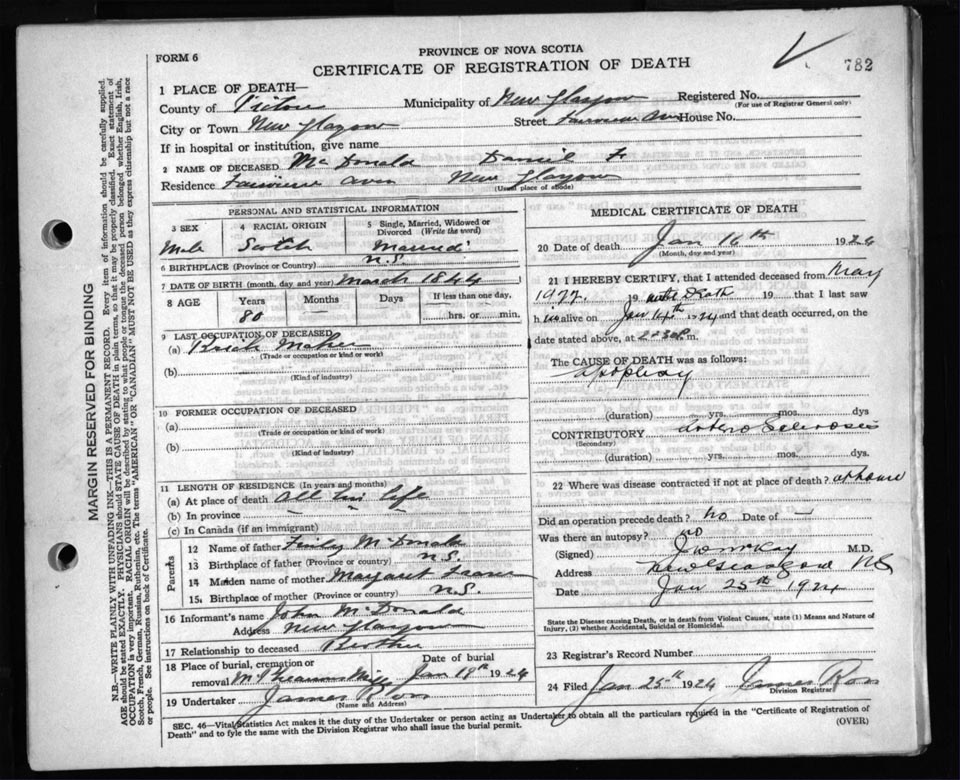 PROVINCE OF NOVA SCOTIA
FORM 6
CERTIFICATE OF REGISTRATION OF DEATH
782
1 PLACE OF DEATH—
County of Pictou Municipality of New Glasgow Registered No.
(For use of Registrar General only)
City or Town New Glasgow Street Fairview Ave House No.
If in hospital or institution, give name
2 NAME OF DECEASED McDonald Daniel F.
Residence Fairview Aven New Glasgow
(Usual place of abode)
PERSONAL AND STATISTICAL INFORMATION
3 SEX 4 RACIAL ORIGIN 5 Single, Married, Widowed or Divorced (Write the word)
Male Scotch Married
6 BIRTHPLACE (Province or Country) N.S.
7 DATE OF BIRTH (month, day and year) March 1844
8 AGE Years Months Days If less than one day,
80 — — hrs. or min.
9 LAST OCCUPATION OF DECEASED
(a) Maker
(Trade or occupation or kind or work)
(b)
(Kind of industry)
10 FORMER OCCUPATION OF DECEASED
(a)
(Trade or occupation or kind or work)
(b)
(Kind of industry)
11 LENGTH OF RESIDENCE (In years and months)
(a) At place of death All his life
(b) In province — — —
(c) In Canada (if an immigrant)
Parents
12 Name of father Finly McDonald
13 Birthplace of father (Province or country) N.S.
14 Maiden name of mother Margaret
15 Birthplace of mother (Province or country) N.S.
16 Informant's name John McDonald
Address New Glasgow
17 Relationship to deceased Brother
18 Place of burial, cremation or Date of burial
removal Jan 19th 1924
19 Undertaker James Ross
(Name and Address)
MEDICAL CERTIFICATE OF DEATH
20 Date of death Jan 16th 1924
(Month, day and year)
21 I HEREBY CERTIFY, that I attended deceased from May
1922 19 until Death 19 that I last saw
h im alive on Jan 14th 1924 and that death occurred, on
date stated above, at 2.30 P. m.
The CAUSE OF DEATH was as follows:
apoplexy
(duration) yrs. mos. dys
CONTRIBUTORY Artero Sclerosis
(Secondary)
(duration) yrs. mos. dys
22 Where was disease contracted if not at place of death? at home
Did an operation precede death? No Date of —
Was there an autopsy? No
(Signed) M.D.
Address New Glasgow NS
Date Jan 25th 1924
State the Disease causing Death, or in death from Violent Causes, state (1) Means and Nature of
Injury, (2) whether Accidental, Suicidal or Homicidal.
23 Registrar's Record Number
24 Filed Jan 25th 1924 James Ross
Division Registrar
SEC. 46—Vital Statistics Act makes it the duty of the Undertaker or person acting as Undertaker to obtain all the particulars required in the "Certificate of Registration of
Death" and to fyle the same with the Division Registrar who shall issue the burial permit.
(OVER)
MARGIN RESERVED FOR BINDING
N.B.—WRITE PLAINLY WITH UNFADING INK—THIS IS A PERMANENT RECORD. Every item of information should be carefully supplied.
AGE should be stated EXACTLY. PHYSICIANS should STATE CAUSE OF DEATH in plain terms, so that it may be properly classified. Exact statement of
OCCUPATION is very important. RACIAL ORIGIN will be described by stating to what people or tongue the deceased person belonged whether English, Irish,
Scotch, French, German, Russian, Ruthenian, etc. The terms "AMERICAN" OR "CANADIAN" MUST NOT BE USED as they express citizenship but not a race
or people. See instructions on back of Certificate.